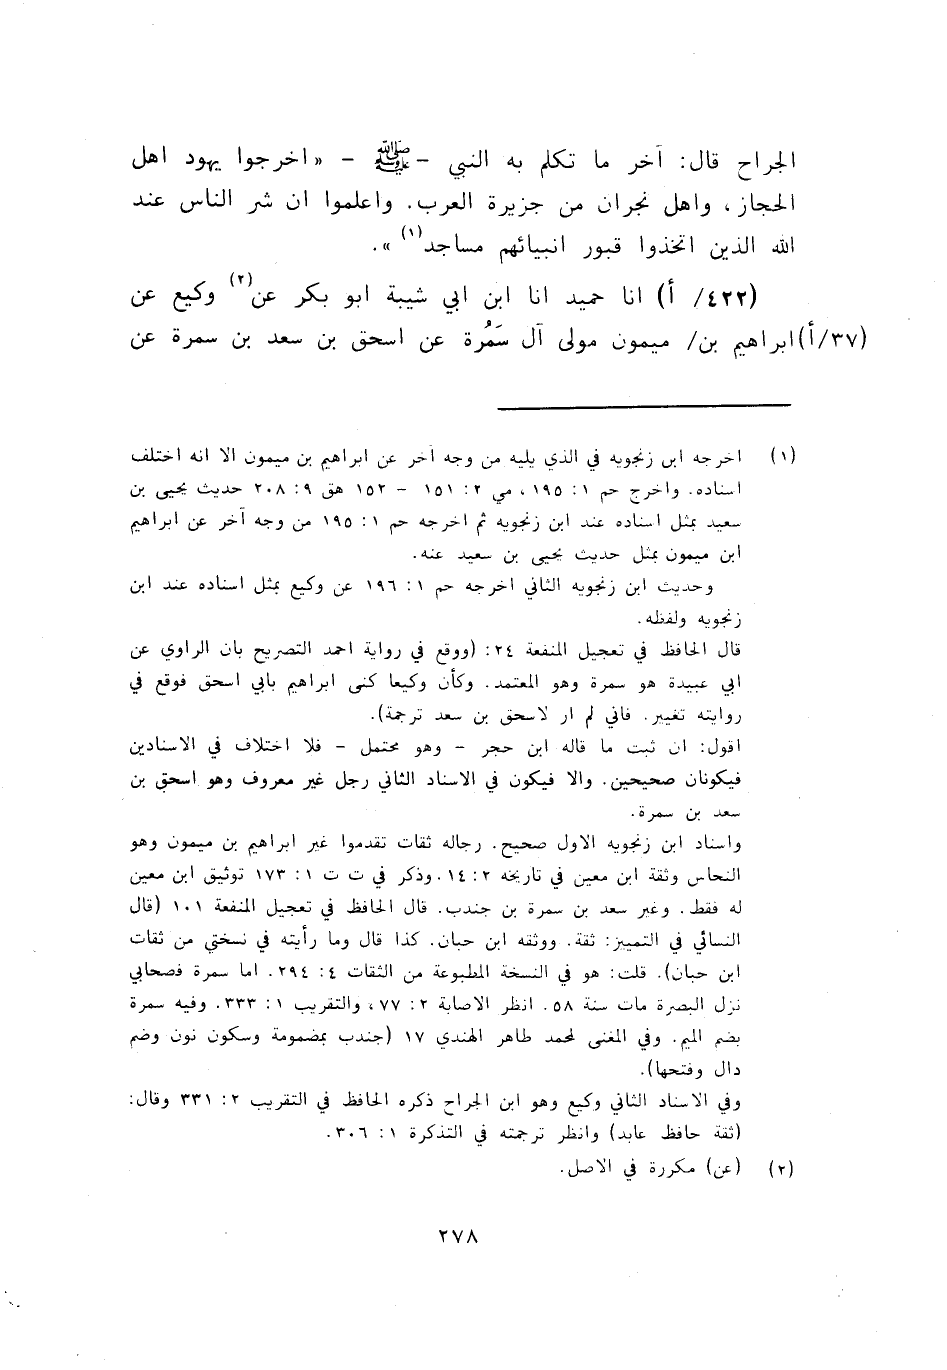 الجراح قال: آخر ما تكلم به النبي – ﷺ – «اخرجوا يهود اهل
الحجاز، واهل نجران من جزيرة العرب. واعلموا ان شر الناس عند
الله الذين اتخذوا قبور انبيائهم مساجد(١)».
(٤٢٢/ أ) انا حميد انا ابن ابي شيبة ابو بكر عن(٢) وكيع عن
(٣٧/أ) ابراهيم بن/ ميمون مولى آل سَمُرة عن اسحق بن سعد بن سمرة عن
(١) اخرجه ابن زنجويه في الذي يليه من وجه آخر عن ابراهيم بن ميمون الا انه اختلف
اسناده. واخرج حم ١: ١٩٥، مي ٢: ١٥١ – ١٥٢ هق ٩: ٢٠٨ حديث يحيى بن
سعيد بمثل اسناده عند ابن زنجويه ثم اخرجه حم ١: ١٩٥ من وجه آخر عن ابراهيم
ابن ميمون بمثل حديث يحيى بن سعيد عنه.
وحديث ابن زنجويه الثاني اخرجه حم ١: ١٩٦ عن وكيع بمثل اسناده عند ابن
زنجويه ولفظه.
قال الحافظ في تعجيل المنفعة ٢٤: (ووقع في رواية احمد التصريح بان الراوي عن
ابي عبيدة هو سمرة وهو المعتمد. وكأن وكيعا كنى ابراهيم بابي اسحق فوقع في
روايته تغيير. فاني لم ار لاسحق بن سعد ترجمة).
اقول: ان ثبت ما قاله ابن حجر – وهو محتمل – فلا اختلاف في الاسنادين
فيكونان صحيحين. والا فيكون في الاسناد الثاني رجل غير معروف وهو اسحق بن
سعد بن سمرة.
واسناد ابن زنجويه الاول صحيح. رجاله ثقات تقدموا غير ابراهيم بن ميمون وهو
النحاس وثقة ابن معين في تاريخه ٢: ١٤. وذكر في ت ت ١: ١٧٣ توثيق ابن معين
له فقط. وغير سعد بن سمرة بن جندب. قال الحافظ في تعجيل المنفعة ١٠١ (قال
النسائي في التمييز: ثقة. ووثقه ابن حبان. كذا قال وما رأيته في نسختي من ثقات
ابن حبان). قلت: هو في النسخة المطبوعة من الثقات ٤: ٢٩٤. اما سمرة فصحابي
نزل البصرة مات سنة ٥٨. انظر الاصابة ٢: ٧٧، والتقريب ١: ٣٣٣. وفيه سمرة
بضم الميم. وفي المغنى لمحمد طاهر الهندي ١٧ (جندب بمضمومة وسكون نون وضم
دال وفتحها).
وفي الاسناد الثاني وكيع وهو ابن الجراح ذكره الحافظ في التقريب ٢: ٣٣١ وقال:
(ثقة حافظ عابد) وانظر ترجمته في التذكرة ١: ٣٠٦.
(٢) (عن) مكررة في الاصل.
٢٧٨